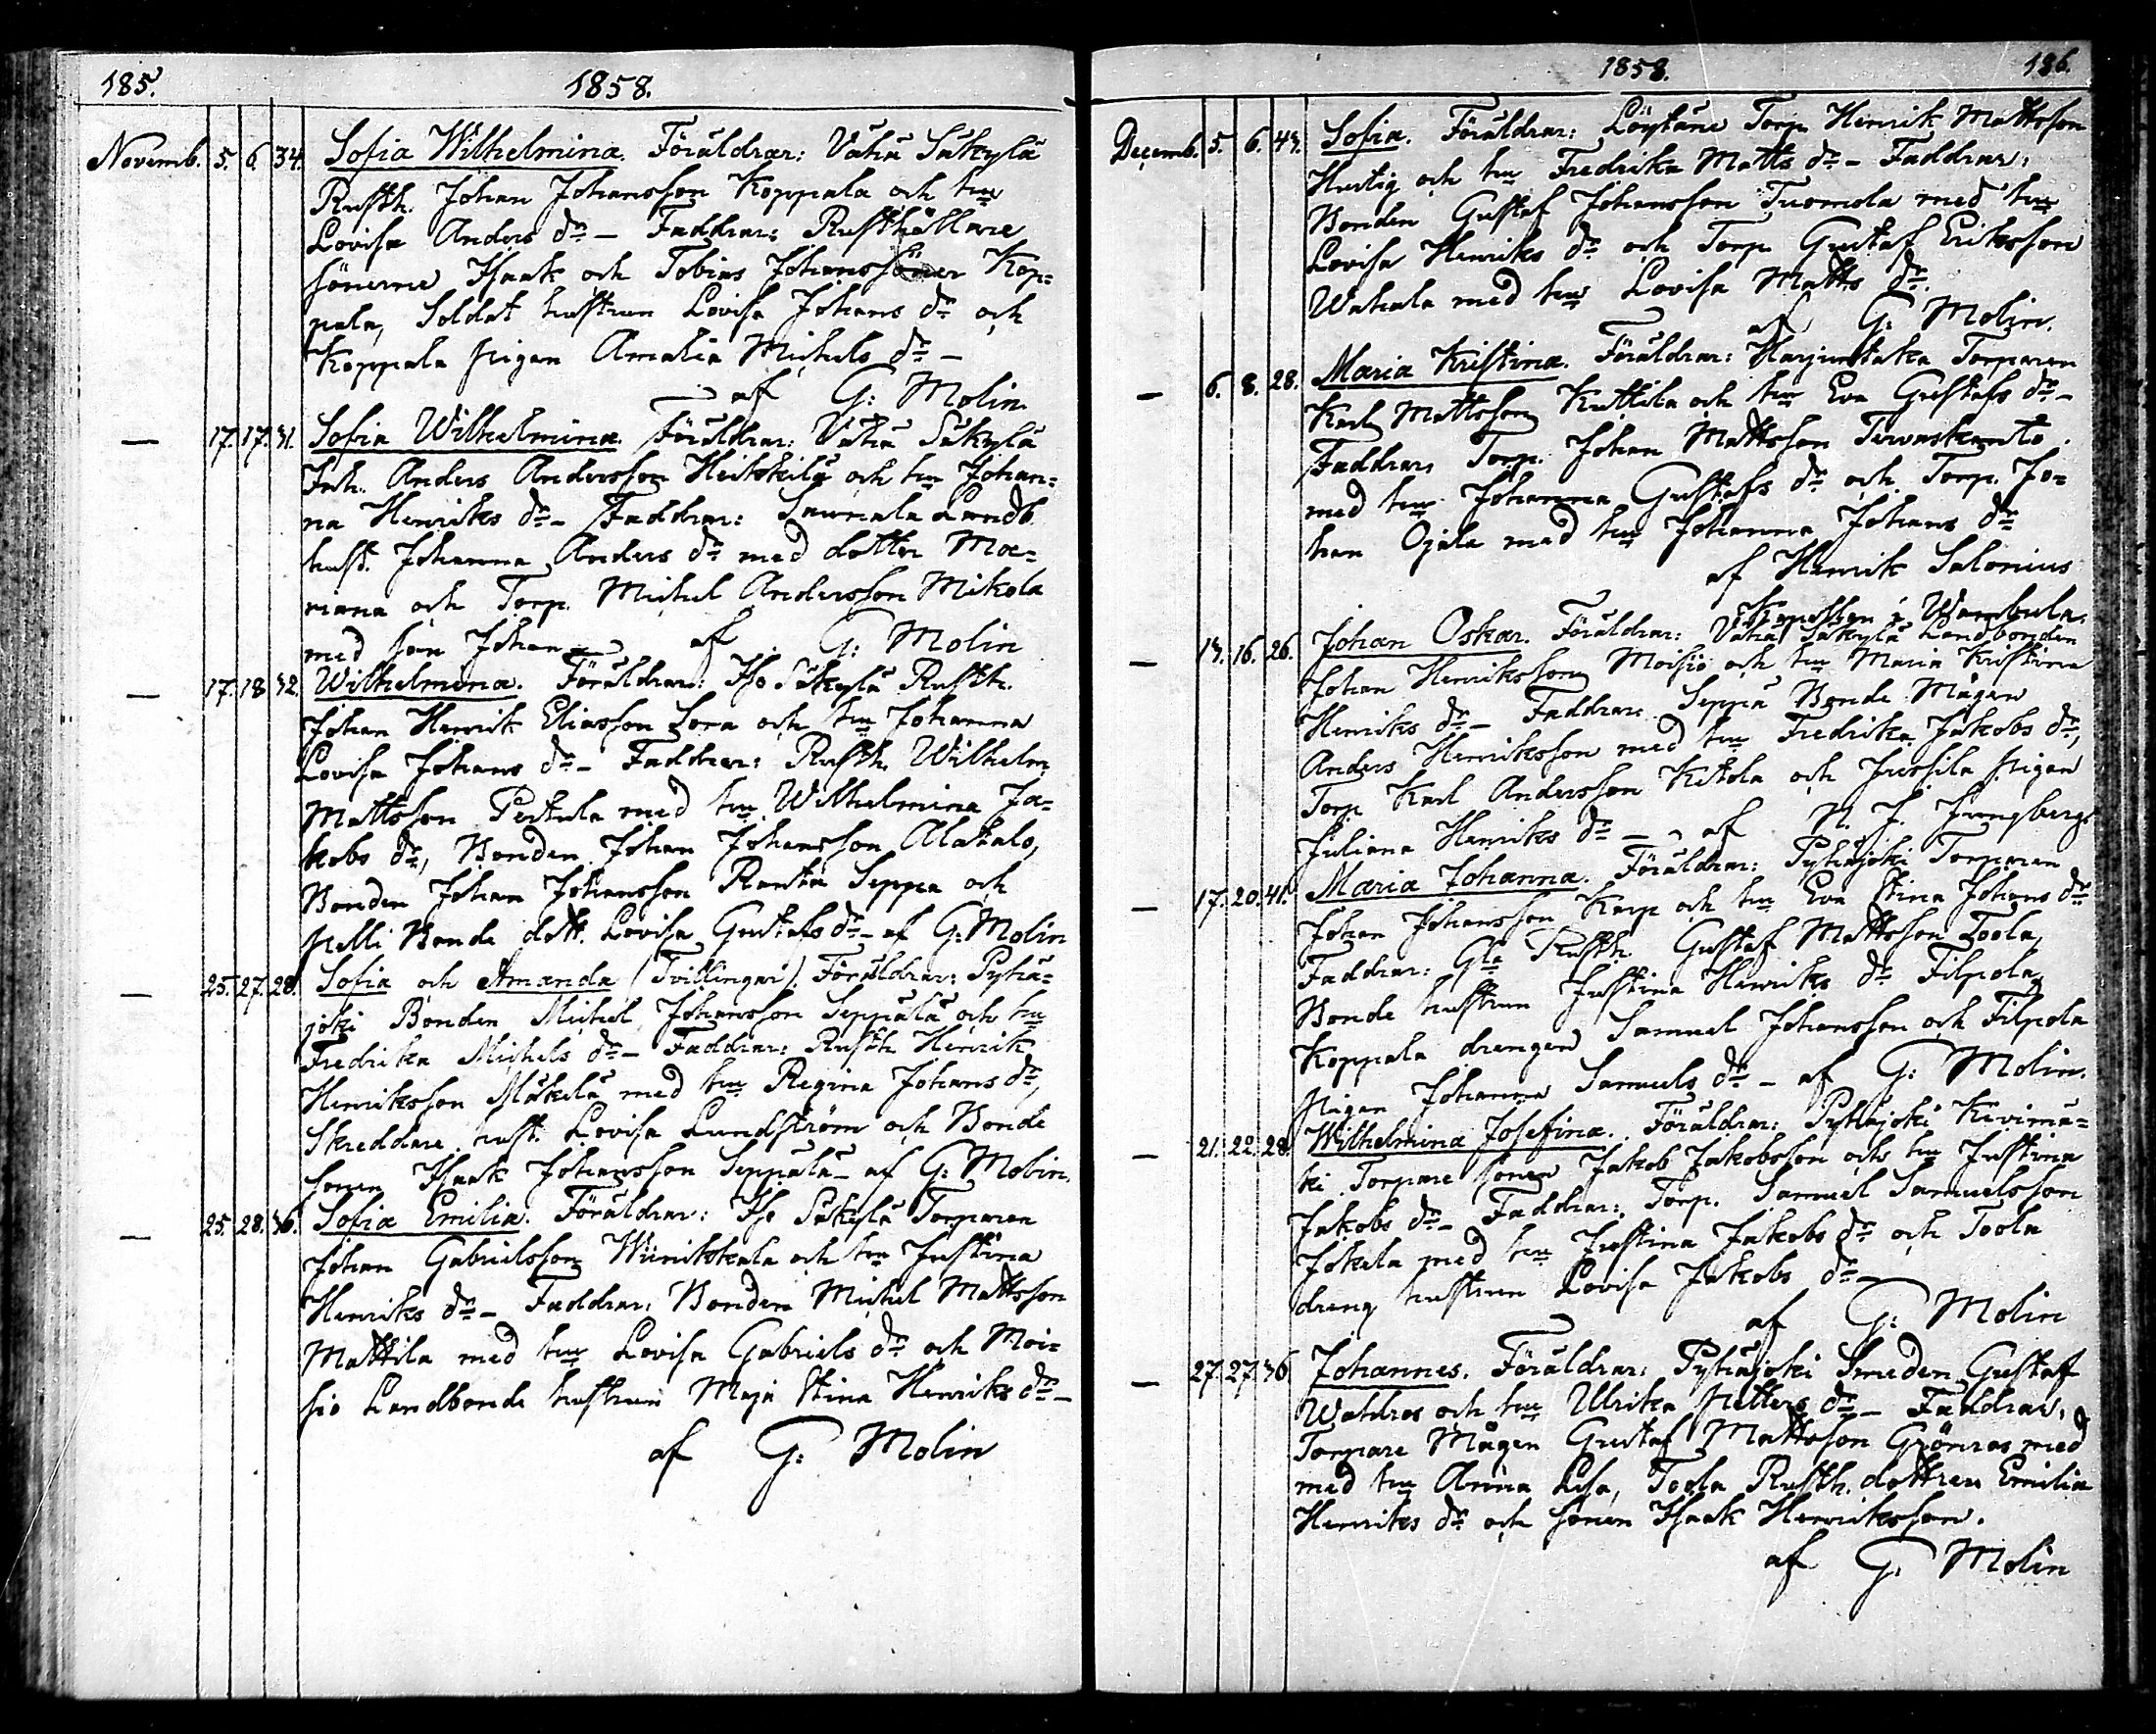 185. 1858.
Novemb. 5. 6. 34. Sofia Wilhelmina. Föräldrar: Vähä Säkylä
Rusth. Johan Johansson Koppala och hu
Lovisa Anders dr – Faddrar: Rusthållare
sönerne Isaak och Tobias Johanssöner Kop=
pala, Soldat hustrun Lovisa Johans dr och
Koppala pigan Amalia Michels dr –
af G: Molin
— 17. 17. 41. Sofia Wilhelmina. Föräldrar: Vähä Säkylä
Inh. Anders Andersson Heikkilä och hu Johan=
na Henriks dr – Faddrar: Saunala Landb.
hust. Johanna Anders dr med dotter Ma=
riana och Torp. Michel Andersson Mikola
med son Johan – af G: Molin
— 17. 18. 42. Wilhelmina. Föräldrar: Iso Säkylä Rusth.
Johan Henrik Eliasson Sora och hu Johanna
Lovisa Johans dr – Faddrar: Rusth. Wilhelm
Mattsson Perttula med hu Wilhelmina Ja=
kobs dr, Bonden Johan Johansson Alatalo,
Bonden Johan Johansson Ranta Seppä och
Pelli Bonde dott. Lovisa Gustafs dr – af G: Molin
— 25. 27. 28. Sofia och Amanda (Tvillingar). Föräldrar: Pyhä=
joki Bonden Michel Johansson Seppälä och hu
Fredrika Michels dr – Faddrar: Rusth. Henrik
Henriksson Mäkelä med hu Regina Johans dr,
Skreddare hust. Lovisa Lundström och Bonde
sonen Isaak Johansson Seppälä – af G: Molin.
— 25. 28. 36. Sofia Emilia. Föräldrar: Iso Säkylä Torparen
Johan Gabrielsson Wiinikkala och hu Justina
Henriks dr – Faddrar: Bonden Michel Mattsson
Mattila med hu Lovisa Gabriels dr och Moi=
sio Landbonde hustrun Maja Stina Henriks dr –
af G: Molin
1858. 186.
Decemb. 5. 6. 44. Sofia. Föräldrar: Löytäne Torp. Henrik Mattsson
Hurtig och hu Fredrika Matts dr – Faddrar:
Bonden Gustaf Johansson Tuomola med hu
Lovisa Henriks dr och Torp. Gustaf Eriksson
Wahala med hu Lovisa Matts dr.
af G: Molin.
— 6. 8. 28. Maria Kristina. Föräldrar: Harjuntaka Torparen
Karl Mattsson Kuttila och hu Eva Gustafs dr –
Faddrar: Torp. Johan Mattsson Tervaskanto
med hu Johanna Gustafs dr och Torp. Jo=
han Ojala med hu Johanna Johans dr
af Henrik Salonius
i Wambula.
— 14. 16. 26. Johan Oskar. Föräldrar: Vähä Säkylä Landbonden
Johan Henriksson Moisio och hu Maria Kristina
Henriks dr – Faddrar: Seppä Bonde Mågen
Anders Henriksson med hu Fredrika Jakobs dr,
Torp. Karl Andersson Kitola och Jussila pigan
Juliana Henriks dr – af N. J. Ljungberg
— 17. 20. 41. Maria Johanna. Föräldrar: Pyhäjoki Torparen
Johan Johansson Karp och hu Eva Stina Johans dr
Faddrar: Gle Rusth. Gustaf Mattsson Toola,
Bonde hustrun Justina Henriks dr Filpola,
Koppala drengen Samuel Johansson och Filpola
pigan Johanna Samuels dr – af G: Molin.
— 21. 22. 28. Wilhelmina Josefina. Föräldrar: Pyhäjoki Kivimä=
ki Torpare sonen Jakob Jakobsson och hu Justina
Jakobs dr – Faddrar: Torp. Samuel Samuelsson
Jokela med hu Justina Jakobs dr och Toola
dreng hustrun Lovisa Jakobs dr –
af G: Molin
— 27. 27. 36. Johannes. Föräldrar: Pyhäjoki Smeden Gustaf
Wahlros och hu Ulrika Petters dr – Faddrar:
Torpare Mågen Gustaf Mattsson Grönros med
med hu Anna Lisa, Toola Rusth. dottren Emilia
Henriks dr och sonen Isaak Henriksson.
af G: Molin